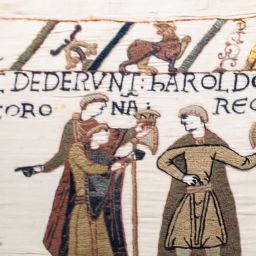 DEDERVNT: hAROLDO
CORO NA: REG